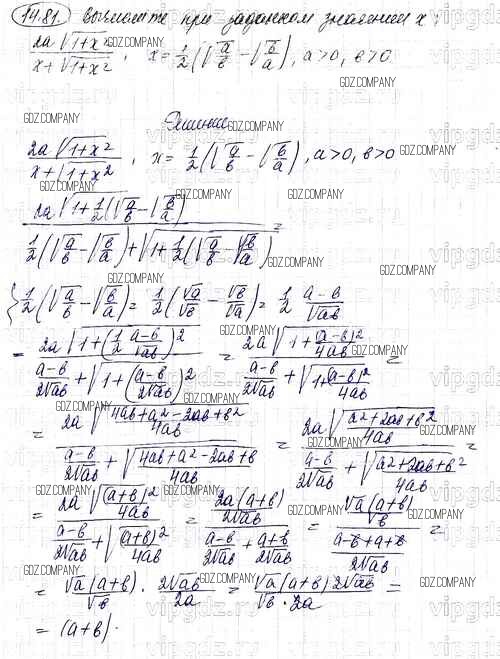 14.81. Вычислите при заданном значении x:
2a√(1+x²) / (x+√(1+x²)), x = 1/2(√(a/b) − √(b/a)), a>0, b>0.
GDZ.COMPANY
Решение
2a√(1+x²) / (x+√(1+x²)), x = 1/2(√(a/b) − √(b/a)), a>0, b>0
2a√(1+1/2(√(a/b) − √(b/a))) / (1/2(√(a/b) − √(b/a)) + √(1+1/2(√(a/b) − √(b/a)))) =
{1/2(√(a/b) − √(b/a)) = 1/2(√a/√b − √b/√a) = 1/2 (a−b)/√(ab)
= 2a√(1+(1/2 (a−b)/√(ab))²) / ((a−b)/(2√(ab)) + √(1+((a−b)/(2√(ab)))²)) = 2a√(1+(a−b)²/(4ab)) / ((a−b)/(2√(ab)) + √(1+(a−b)²/(4ab))) =
= 2a√((4ab+a²−2ab+b²)/(4ab)) / ((a−b)/(2√(ab)) + √((4ab+a²−2ab+b)/(4ab))) = 2a√((a²+2ab+b²)/(4ab)) / ((a−b)/(2√(ab)) + √((a²+2ab+b²)/(4ab))) =
= 2a√((a+b)²/(4ab)) / ((a−b)/(2√(ab)) + √((a+b)²/(4ab))) = (2a(a+b)/(2√(ab))) / ((a−b)/(2√(ab)) + (a+b)/(2√(ab))) = (√a(a+b)/√b) / ((a−b+a+b)/(2√(ab))) =
= √a(a+b)/√b · 2√(ab)/(2a) = √a(a+b)2√(ab) / (√b·2a) =
= (a+b).